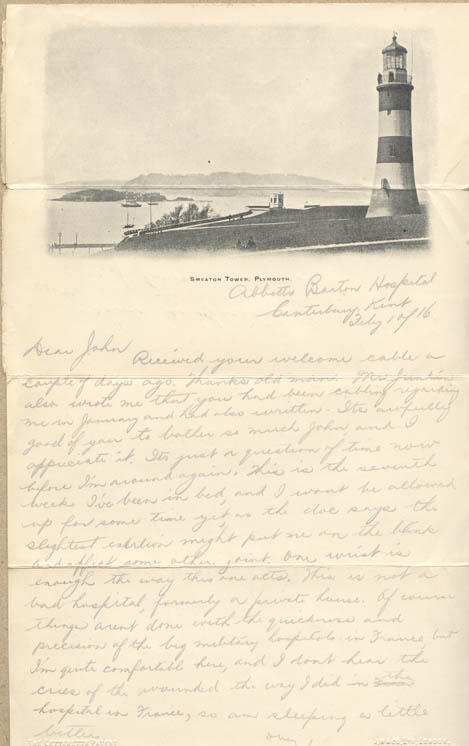 SMEATON TOWER, PLYMOUTH.
Abbotts Barton Hospital
Canterbury, Kent
Feby 1 of 16
Dear John
Received your welcome cable a
couple of days ago. Thanks old man. Mr
also wrote me that you had been cabling regarding
me in January and had also written. Its awfully
good of you to bother so much John and I
appreciate it. Its just a question of time now
before I'm around again. This is the seventh
week I've been in bed, and I wont be allowed
up for some time yet as the doc says the
slightest exertion might put me on the blink
and affect some other joint. One wrist is
enough the way this one acts. This is not a
bad hospital, formerly a private house. Of course
things arent done with the quickness and
precision of the big military hospitals in France, but
I'm quite comfortable here, and I dont hear the
cries of the wounded the way I did in the
hospital in France, so am sleeping a little
better.